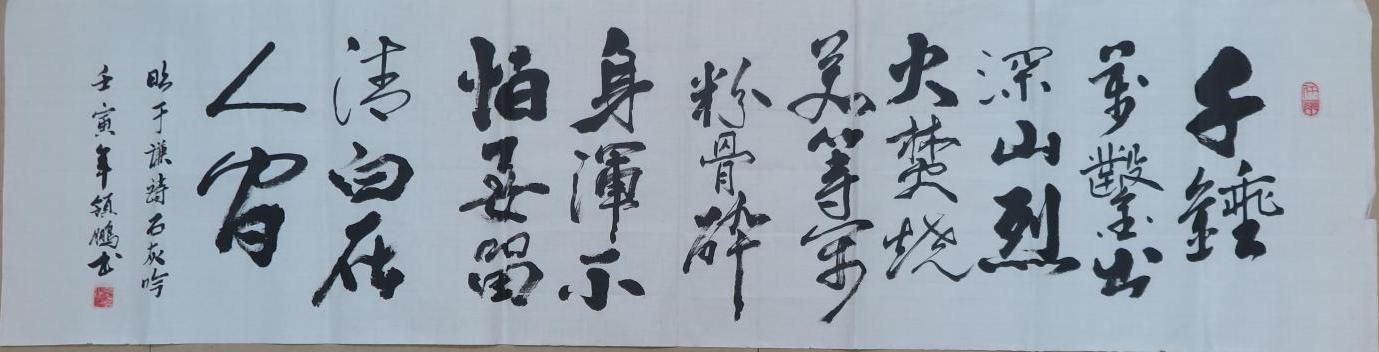 千錘
萬鑿出
深山烈
火焚烧
若等閒
粉骨碎
身渾不
怕要留
清白在
人間
明于謙詩石灰吟
壬寅年領鵬書